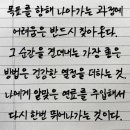 목표를 향해 나아가는 과정에
어려움은 반드시 찾아온다.
그 순간을 견뎌내는 가장 좋은
방법은 건강한 열정을 더하는 것.
나에게 알맞은 연료를 주입해서
다시 한번 뛰어나가는 것이다.